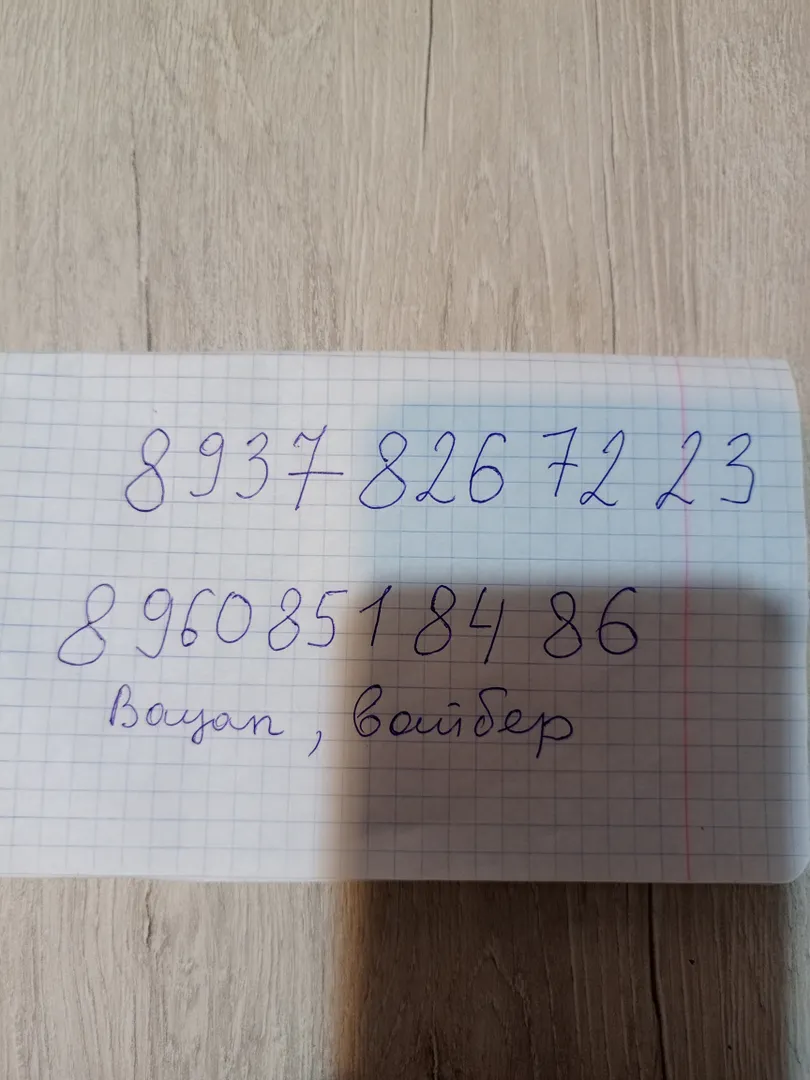 8 937 826 72 23
8 960 851 84 86
Вацап, вайбер